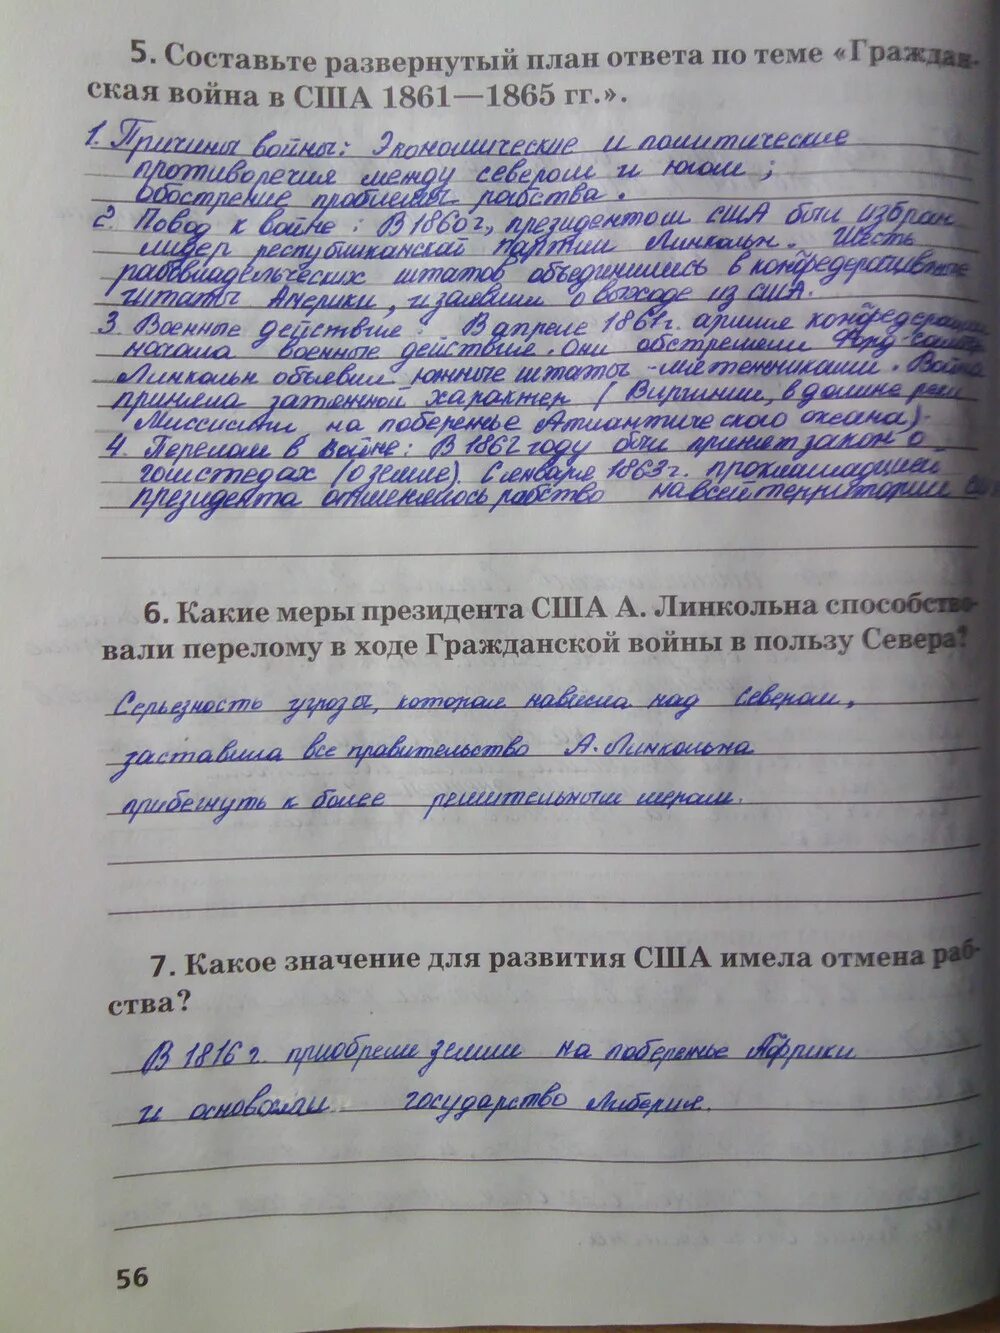 5. Составьте развернутый план ответа по теме «Граждан-
ская война в США 1861—1865 гг.».
1. Причины войны: Экономические и политические
противоречия между севером и югом;
обострение проблемы рабства.
2. Повод к войне: В 1860 г, президентом США был избран
лидер республиканской партии Линкольн. Шесть
рабовладельческих штатов объединились в конфедеративные
штаты Америки, и заявили о выходе из США.
3. Военные действия: В апреле 1861 г. армия конфедерации
начала военные действия. Они обстреляли Форд-
Линкольн объявил южные штаты - мятежниками. Война
приняла затяжной характер (Виргинии, в долине реки
Миссисипи на побережье Атлантического океана).
4. Перелом в войне: В 1862 году был принят закон о
гомстедах (о земле). С 1 января 1863 г. прокламацией
президента отменялось рабство на всей территории США
6. Какие меры президента США А. Линкольна способство-
вали перелому в ходе Гражданской войны в пользу Севера?
Серьезность угрозы, которая нависла над Севером,
заставила все правительство А. Линкольна
прибегнуть к более решительным мерам.
7. Какое значение для развития США имела отмена раб-
ства?
В 1816 г. приобрели земли на побережье Африки
и основали государство Либерия.
56